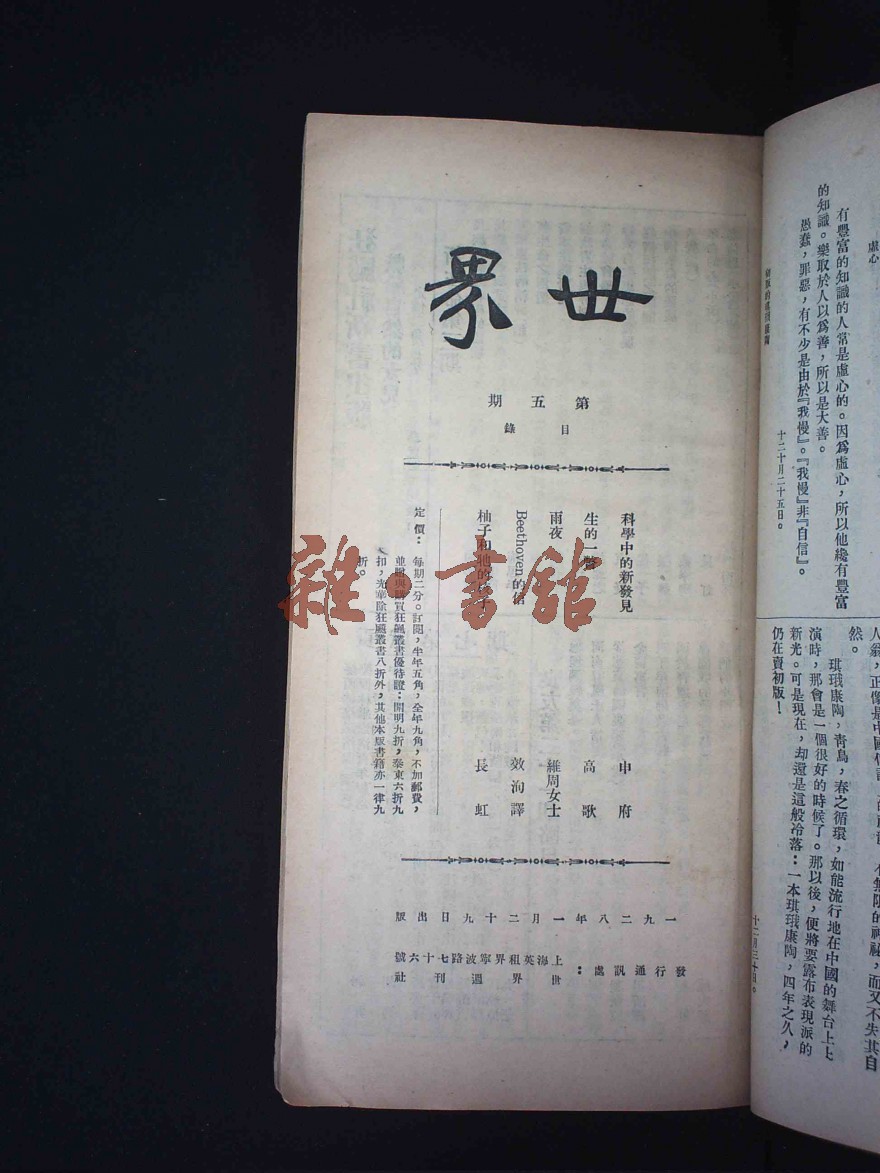 世界
第五期
目錄
科學中的新發見 申府
生的一 高歌
雨夜 維周女士
Beethoven的信 效洵譯
柚子和牠的 長虹
定價：每期二分。訂閱，半年五角，全年九角，不加郵費，
並贈與購買狂飆叢書優待證：開明九折，泰東六折九
扣，光華除狂飆叢書八折外，其他本版書籍亦一律九
折。
一九二八年一月二十九日出版
發行通訊處：上海英租界寧波路七十六號
世界週刊社
雜書館
虛心
有豐富的知識的人常是虛心的。因爲虛心，所以他纔有豐富
的知識。樂取於人以爲善，所以是大善。
愚蠢，罪惡，有不少是由於『我慢』。『我慢』非『自信』。
十二十月二十五日。
不無限的神祕，而又不失其自
然。
琪珴康陶，靑鳥，春之循環，如能流行地在中國的舞台上上
演時，那會是一個很好的時候了。那以後，便將要露布表現派的
新光。可是現在，却還是這般冷落：一本琪珴康陶，四年之久，
仍在賣初版！